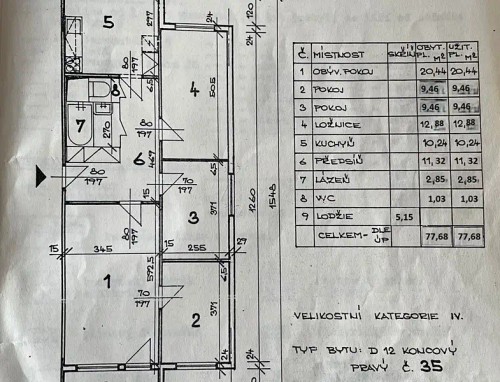 5
297
24
120
24
4
505
8
80
197
65
7
270
6
80
197
467
80
197
15
70
197
65
3
371
1260
1548
80
197
75
345
15
255
29
1
592.5
70
197
65
2
371
24
24
Č. MÍSTNOST SKŘÍŇ OBYT. PL. M2 UŽIT. PL. M2
1 OBÝV. POKOJ 20,44 20,44
2 POKOJ 9,46 9,46
3 POKOJ 9,46 9,46
4 LOŽNICE 12,88 12,88
5 KUCHYŇ 10,24 10,24
6 PŘEDSÍŇ 11,32 11,32
7 LÁZEŇ 2,85 2,85
8 WC 1,03 1,03
9 LODŽIE 5,15
CELKEM - DLE ÚP 77,68 77,68
VELIKOSTNÍ KATEGORIE IV.
TYP BYTU: D 12 KONCOVÝ
PRAVÝ Č. 35